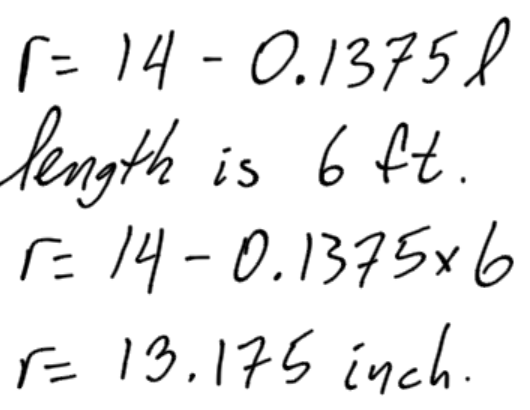 r = 14 - 0.1375 l
length is 6 ft.
r = 14 - 0.1375 x 6
r = 13.175 inch.